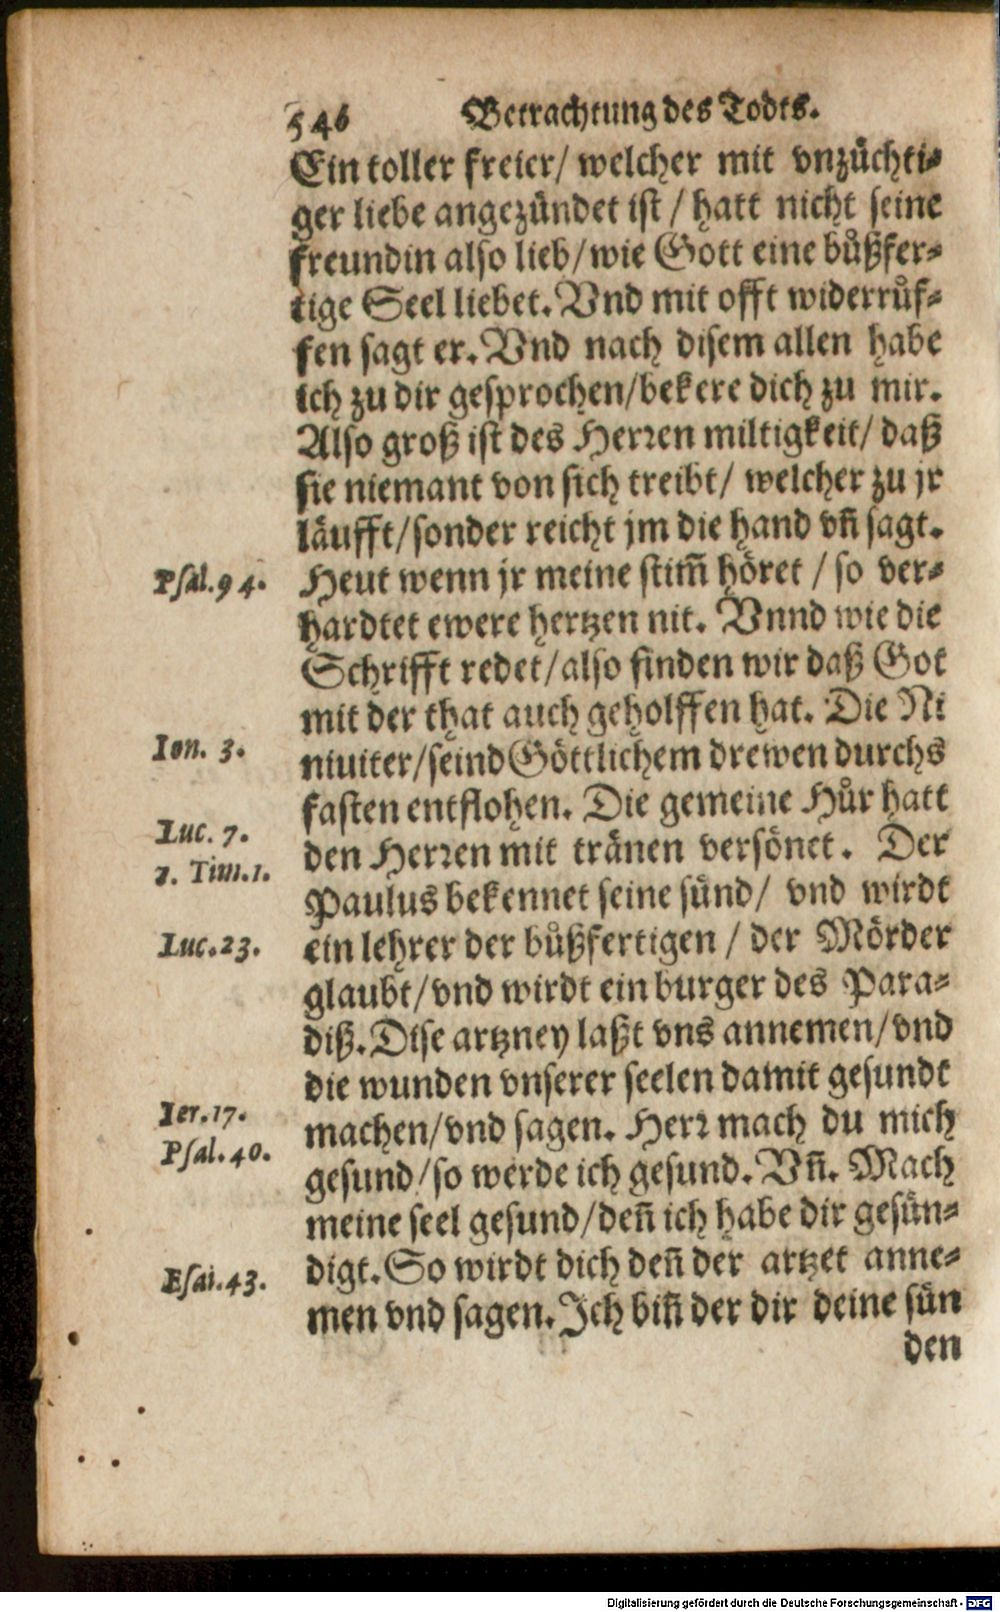 546 Betrachtung des Todts.
Ein toller freier/ welcher mit vnzüchti⸗
ger liebe angezündet ist / hatt nicht seine
freundin also lieb/wie Gott eine bůßfer⸗
tige Seel liebet. Vnd mit offt widerrůf⸗
fen sagt er. Vnd nach disem allen habe
ich zu dir gesprochen/bekere dich zu mir.
Also groß ist des Herren miltigkeit/ daß
sie niemant von sich treibt/ welcher zu jr
läufft/sonder reicht jm die hand vñ sagt.
Psal.94. Heut wenn jr meine stim̃ höret / so ver⸗
hardtet ewere hertzen nit. Vnnd wie die
Schrifft redet/also finden wir daß Got
mit der that auch geholffen hat. Die Ni
Ion. 3. niuiter/seind Göttlichem drewen durchs
fasten entflohen. Die gemeine Hůr hatt
Luc. 7. den Herren mit tränen versönet. Der
1. Tim.1. Paulus bekennet seine sünd/ vnd wirdt
Luc.23. ein lehrer der bůßfertigen / der Mörder
glaubt/vnd wirdt ein burger des Para⸗
diß. Dise artzney laßt vns annemen/vnd
die wunden vnserer seelen damit gesundt
Ier.17. machen/vnd sagen. Herr mach du mich
Psal.40. gesund/so werde ich gesund. Vñ. Mach
meine seel gesund/deñ ich habe dir gesün⸗
Esai.43. digt. So wirdt dich deñ der artzet anne⸗
men vnd sagen. Ich biñ der dir deine sün
den
Digitalisierung gefördert durch die Deutsche Forschungsgemeinschaft - DFG